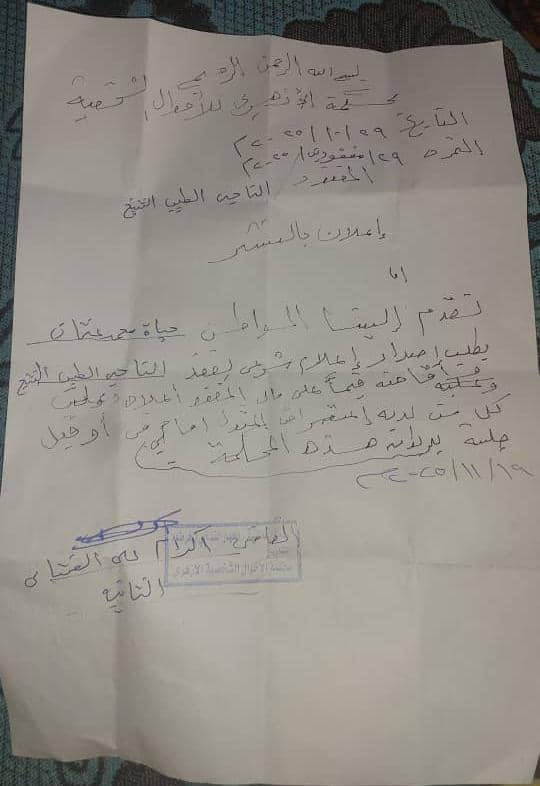 بسم الله الرحمن الرحيم
محكمة الأزهري للأحوال الشخصية
التاريخ ٢٩/١٠/٢٠٢٥م
النمره ٢٩/مفقودي/٢٠٢٥م
المفقود / التاجي الطيب الشيخ
إعلان بالنشر
تقدم إلينا المواطن حياة محمد عثمان
بطلب إصدار إعلام شرعي بفقد التاجي الطيب الشيخ
قيماً على مال المفقود أعلاه وعلى
كل من لديه إعتراض المثول أمامي في أو قبل
جلسة هذه المحكمة
١٩/١١/٢٠٢٥م
القاضي / اكرام على
الثانيه
محكمة الاحوال الشخصية الازهري